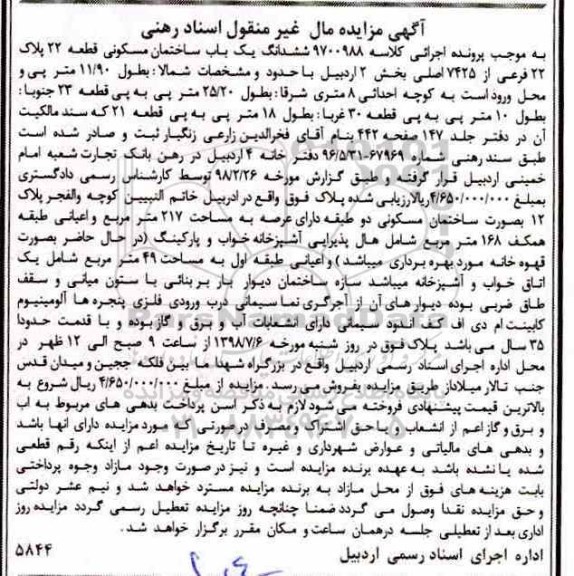 آگهی مزایده مال غیر منقول اسناد رهنی
به موجب پرونده اجرائی کلاسه ۹۷۰۰۹۸۸ ششدانگ یک باب ساختمان مسکونی قطعه ۲۲ پلاک
۲۲ فرعی از ۷۴۲۵ اصلی بخش ۲ اردبیل با حدود و مشخصات شمالا: بطول ۱۱/۹۰ متر پی و
محل ورود است به کوچه احداثی ۸ متری شرقا: بطول ۲۵/۲۰ متر پی به پی قطعه ۲۳ جنوبا:
بطول ۱۰ متر پی به پی قطعه ۳۰ غربا: بطول ۱۸ متر پی به پی قطعه ۲۱ که سند مالکیت
آن در دفتر جلد ۱۴۷ صفحه ۴۴۲ بنام آقای فخرالدین زارعی زنگبار ثبت و صادر شده است
طبق سند رهنی شماره ۶۷۹۶۹-۹۶/۵/۳۱ دفتر خانه ۴ اردبیل در رهن بانک تجارت شعبه امام
خمینی اردبیل قرار گرفته و طبق گزارش مورخه ۹۸/۲/۲۶ توسط کارشناس رسمی دادگستری
بمبلغ ۴/۶۵۰/۰۰۰/۰۰۰ریال ارزیابی شده پلاک فوق واقع در اردبیل خاتم النبیین کوچه والفجر پلاک
۱۲ بصورت ساختمان مسکونی دو طبقه دارای عرصه به مساحت ۲۱۷ متر مربع و اعیانی طبقه
همکف ۱۶۸ متر مربع شامل هال پذیرایی آشپزخانه خواب و پارکینگ (در حال حاضر بصورت
قهوه خانه مورد بهره برداری میباشد ) و اعیانی طبقه اول به مساحت ۴۹ متر مربع شامل یک
اتاق خواب و آشپزخانه میباشد سازه ساختمان دیوار بار بر بنائی با ستون میانی و سقف
طاق ضربی بوده دیوار های آن از آجرگری نما سیمانی درب ورودی فلزی پنجره ها آلومینیوم
کابینت ام دی اف کف اندود سیمانی دارای انشعابات آب و برق و گاز بوده و با قدمت حدودا
۳۵ سال می باشد پلاک فوق در روز شنبه مورخه ۱۳۹۸۷/۶ از ساعت ۹ صبح الی ۱۲ ظهر در
محل اداره اجرای اسناد رسمی اردبیل واقع در بزرگراه شهدا ما بین فلکه ججین و میدان قدس
جنب تالار میلاد از طریق مزایده بفروش می رسد. مزایده از مبلغ ۴/۶۵۰/۰۰۰/۰۰۰ ریال شروع به
بالاترین قیمت پیشنهادی فروخته می شود لازم به ذکر است پرداخت بدهی های مربوط به اب
و برق و گاز اعم از انشعاب و یا حق اشتراک و مصرف در صورتی که مورد مزایده دارای انها باشد
و بدهی های مالیاتی و عوارض شهرداری و غیره تا تاریخ مزایده اعم از اینکه رقم قطعی
شده یا نشده باشد به عهده برنده مزایده است و نیز در صورت وجود مازاد وجوه پرداختی
بابت هزینه های فوق از محل مازاد به برنده مزایده مسترد خواهد شد و نیم عشر دولتی
و حق مزایده نقدا وصول می گردد ضمنا چنانچه روز مزایده تعطیل رسمی گردد مزایده روز
اداری بعد از تعطیلی جلسه درهمان ساعت و مکان مقرر برگزار خواهد شد .
اداره اجرای اسناد رسمی اردبیل ۵۸۴۴